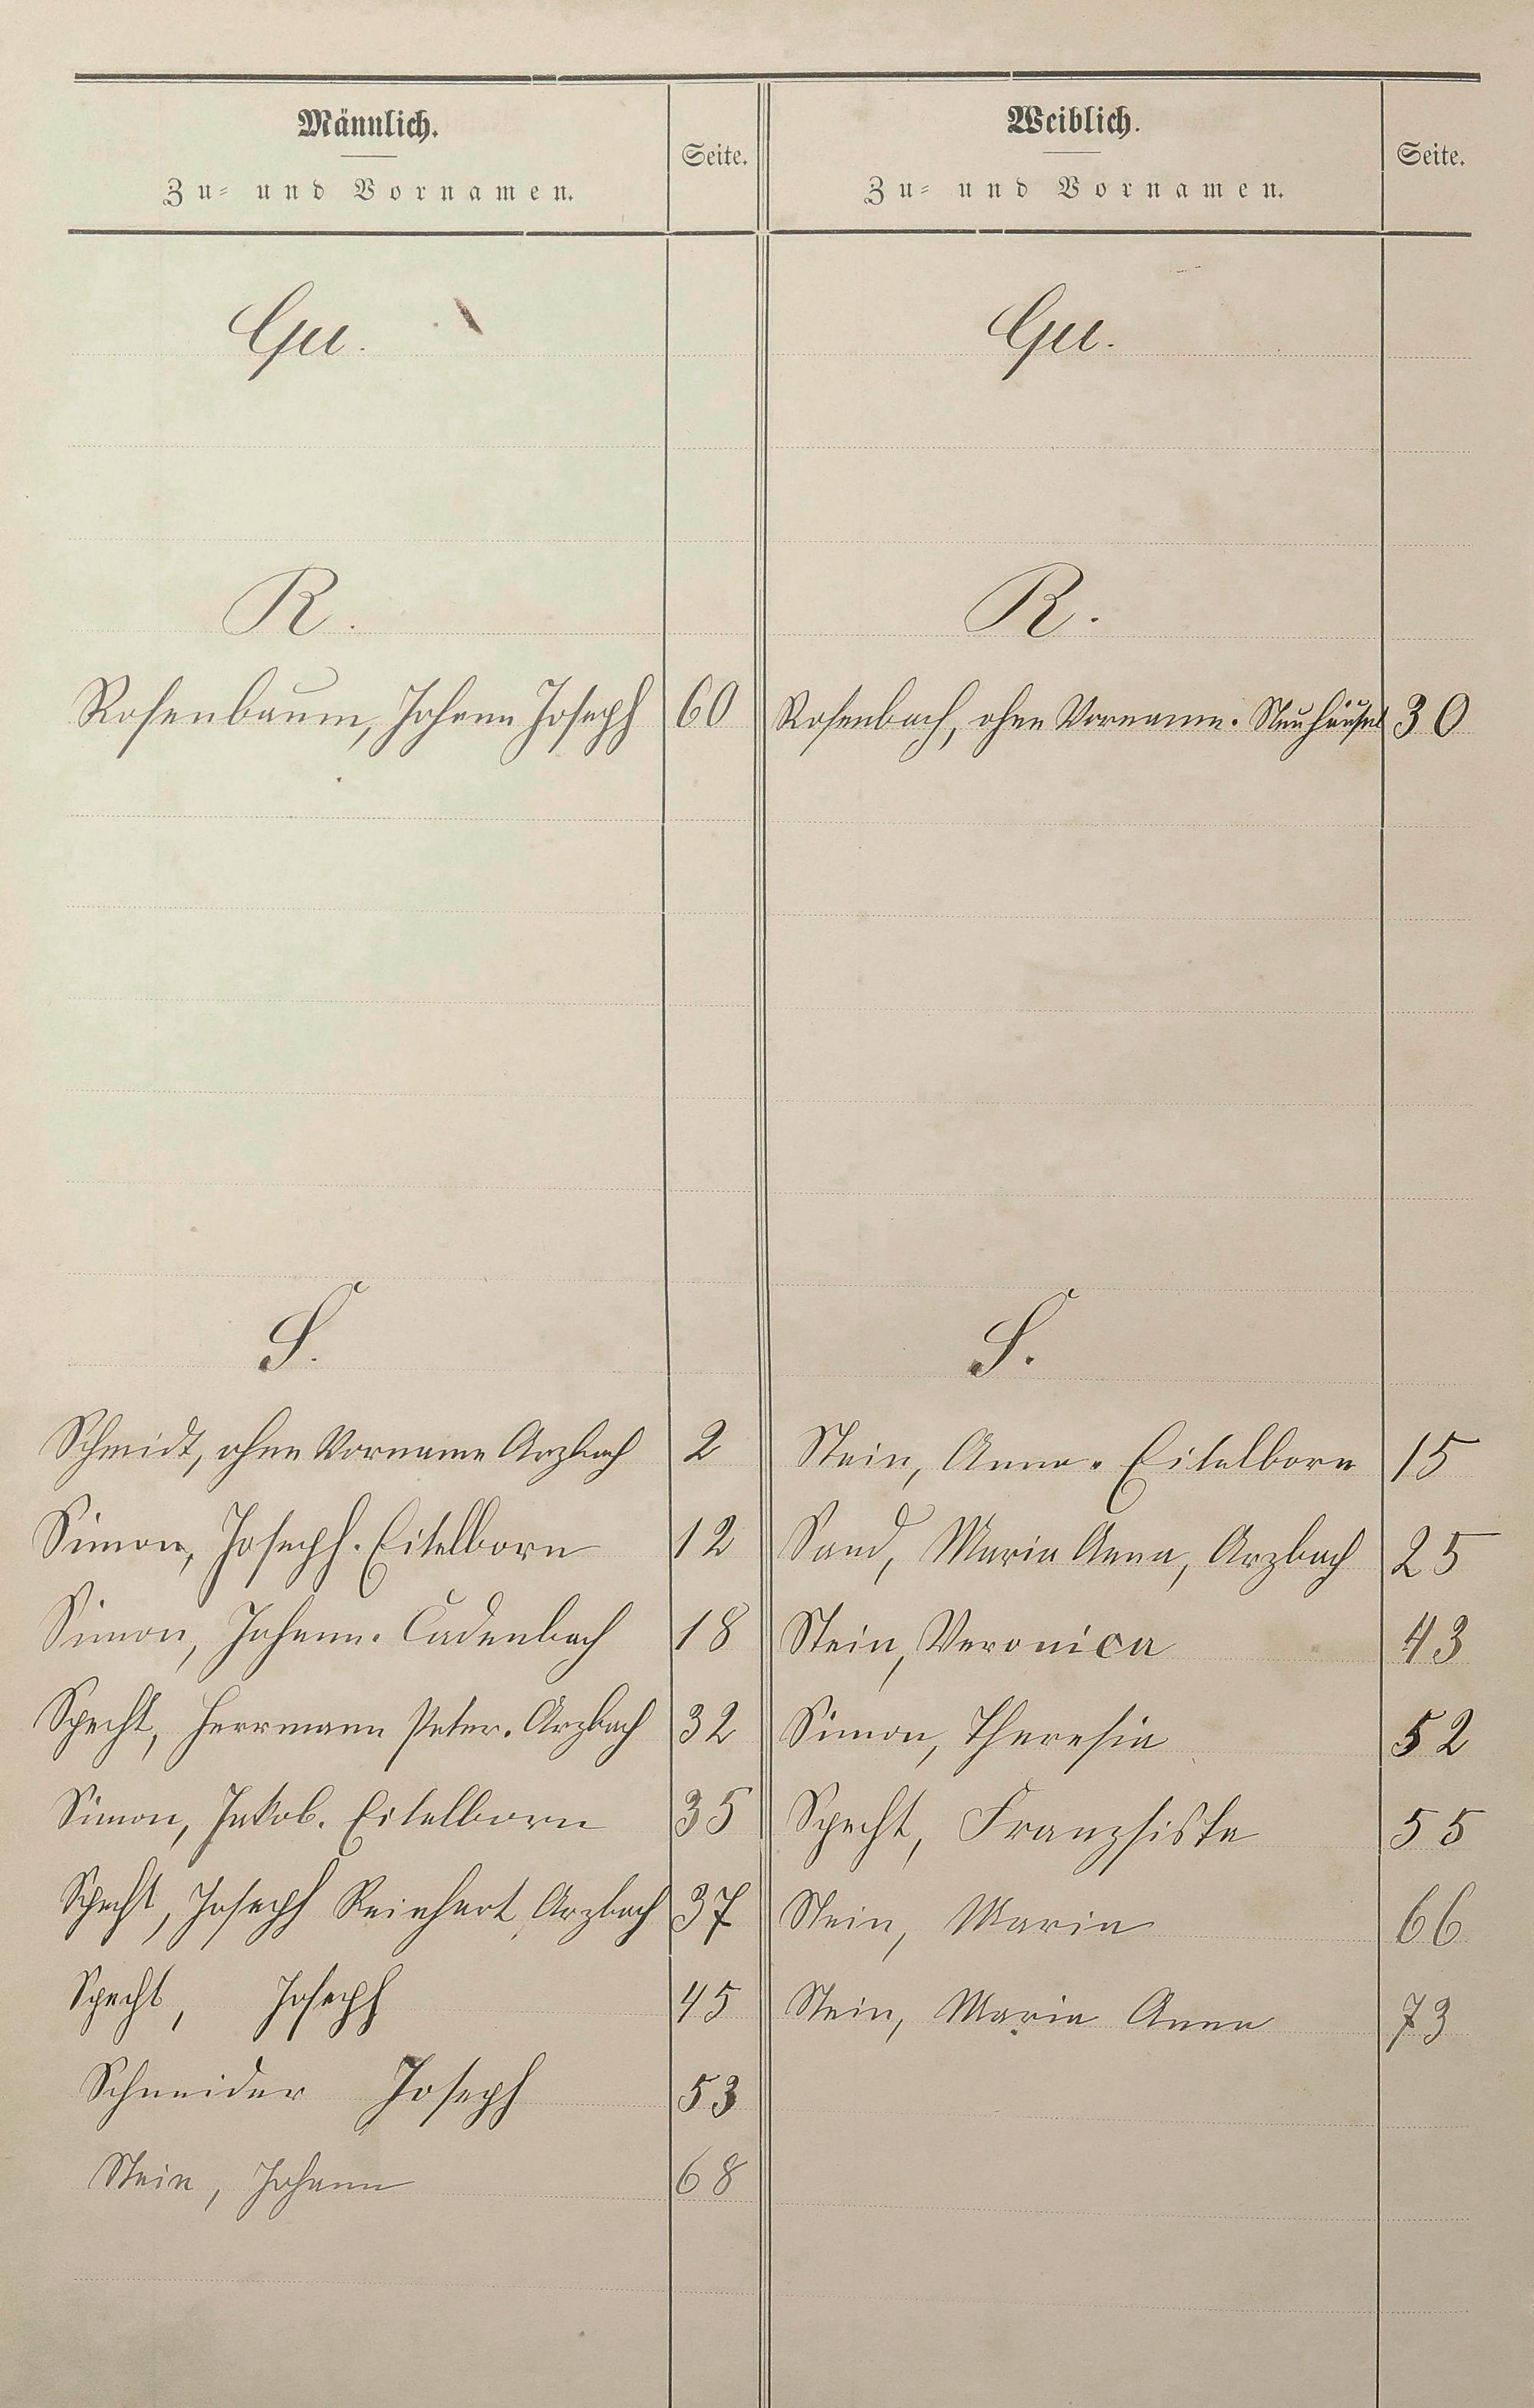 Männlich.
Zu- und Vornamen.
Seite.
Weiblich.
Zu- und Vornamen.
Seite.
Qu.
Qu.
R.
R.
Rosenbaum, Johann Joseph 60
Rosenbach, ohne Vorname. Neuhäusel 30
S.
S.
Schmidt, ohne Vorname Arzbach 2
Stein, Anna. Eitelborn 15
Simon, Joseph. Eitelborn 12
Sand, Maria Anna, Arzbach 25
Simon, Johann. Cadenbach 18
Stein, Veronica 43
Specht, Herrmann Peter. Arzbach 32
Simon, Theresia 52
Simon, Jakob. Eitelborn 35
Specht, Franzsiska 55
Specht, Joseph Reinhart, Arzbach 37
Stein, Maria 66
Specht, Joseph 45
Stein, Maria Anna 73
Schneider Joseph 53
Stein, Johann 68